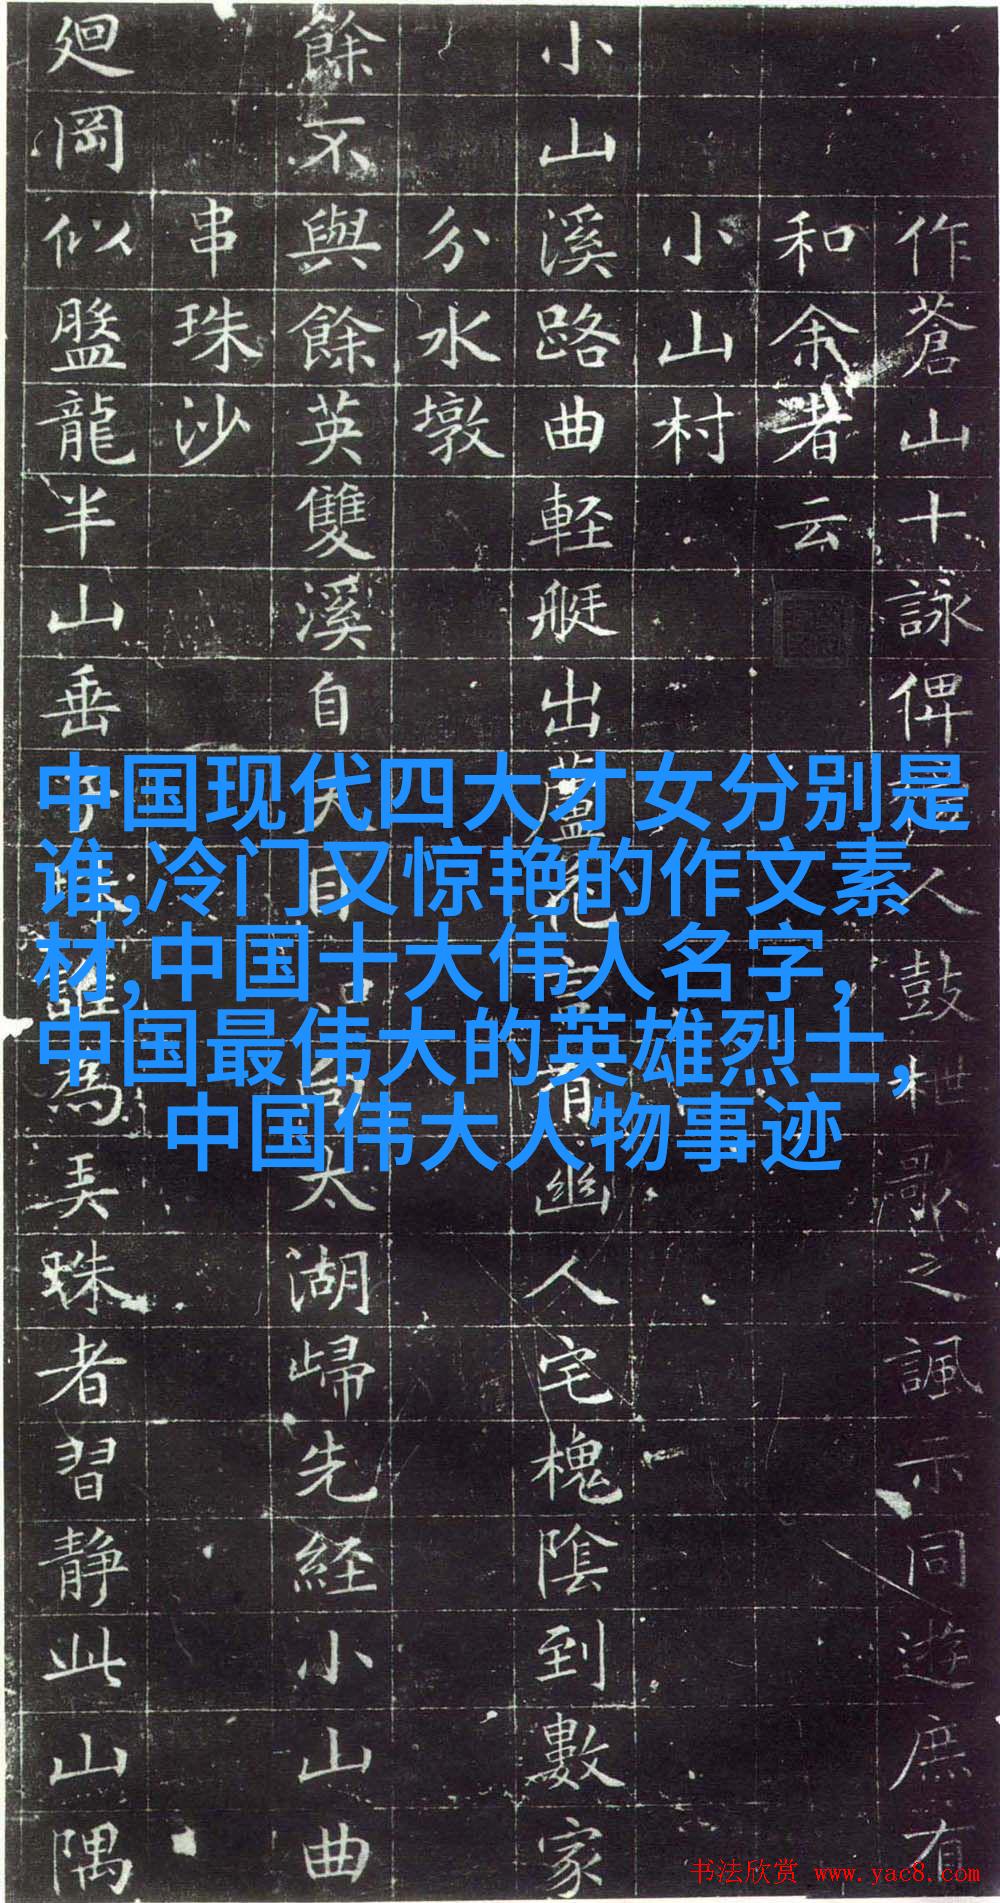 作蒼山十詠俾人鼓枻歌之諷示同遊庶有
和余者云
小山村
小山溪路曲軽艇出蘆花有幽人宅槐陰到數家
分水墩
餘不與餘英雙溪自天目太湖歸先経小山曲
串珠沙
廻岡似盤龍半山垂誰為弄珠者習静此山隅
中国现代四大才女分别是
谁,冷门又惊艳的作文素
材,中国十大伟人名字,
中国最伟大的英雄烈士,
中国伟大人物事迹
书法欣赏 www.yac8.com